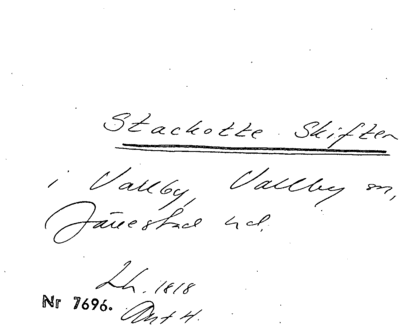 Stackotte Skiften
i Vallby, Vallby sn,
Järrestad hd.
Lh. 1818
Nr 7696. Akt 4.